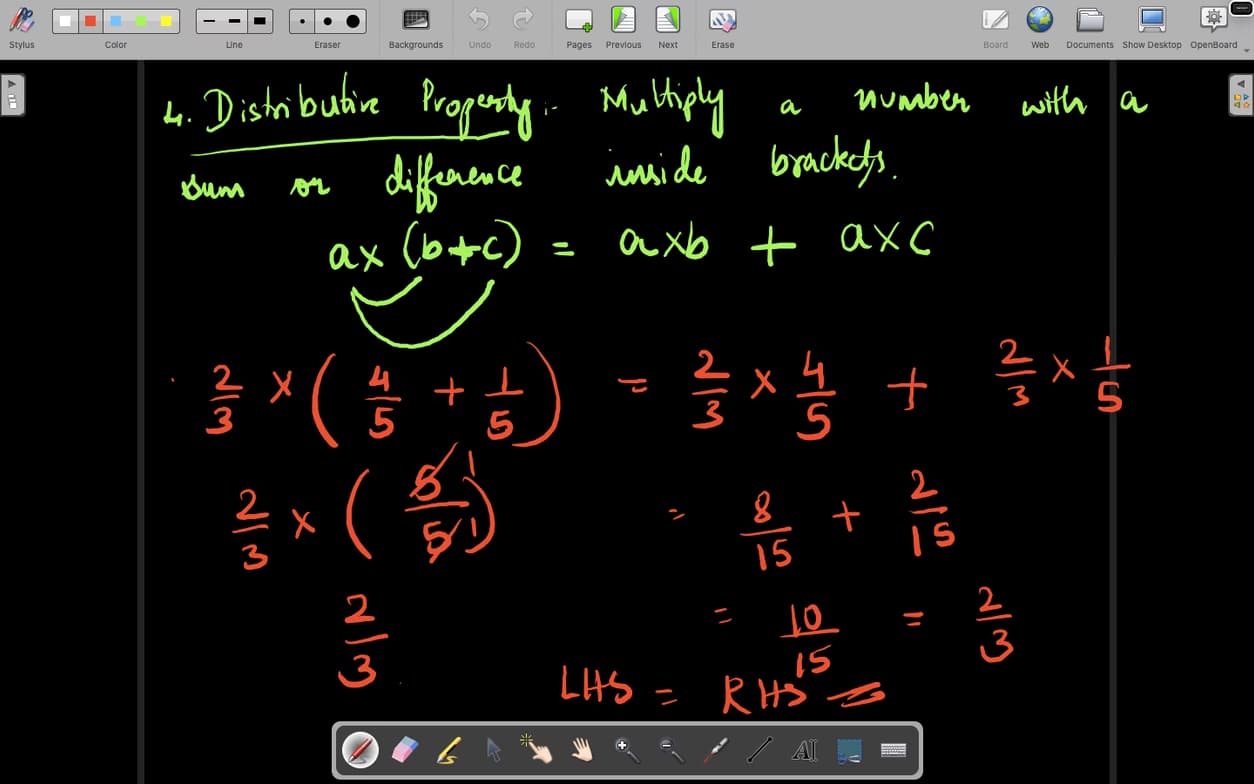 Stylus Color Line Eraser Backgrounds Undo Redo Pages Previous Next Erase Board Web Documents Show Desktop OpenBoard
4. Distributive Property:- Multiply a number with a
sum or difference inside brackets.
a x (b+c) = axb + axc
2/3 x (4/5 + 1/5) = 2/3 x 4/5 + 2/3 x 1/5
2/3 x (5/5) 1 1 = 8/15 + 2/15
2/3 = 10/15 = 2/3
LHS = RHS
AI